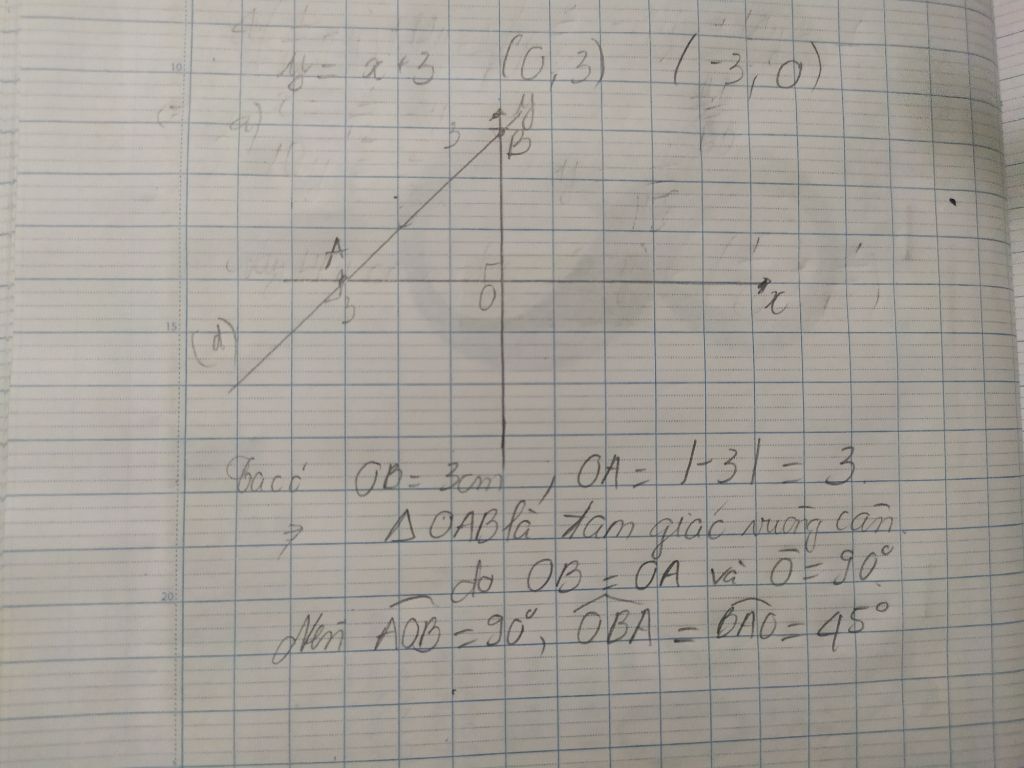 y = x + 3 (0, 3) (-3, 0)
y
3 B
A
3 O x
(d)
Ta có OB = 3cm, OA = |-3| = 3.
=> Δ OAB là tam giác vuông cân
do OB = OA và Ô = 90°
Nên AOB = 90°, OBA = OAO = 45°